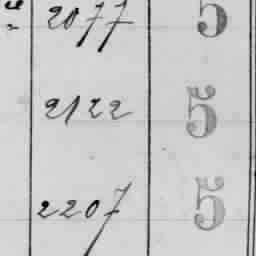 2077 5
2122 5
2207 5